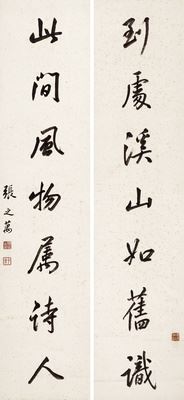 到處溪山如舊識
此間風物屬詩人
張之萬